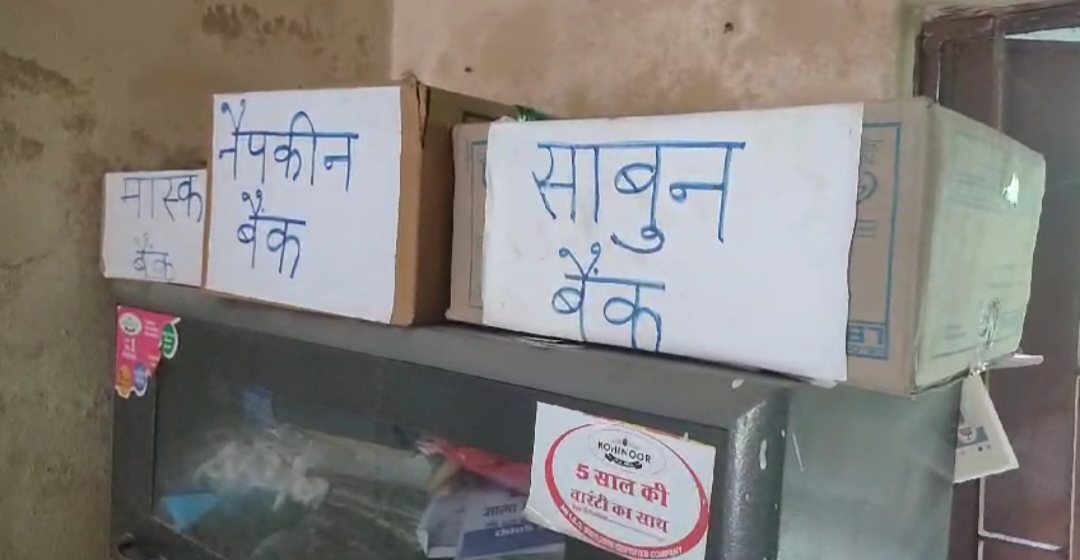 मास्क
बैंक
नैपकीन
बैंक
साबुन
बैंक
KOHINOOR
5 साल की
वारंटी का साथ